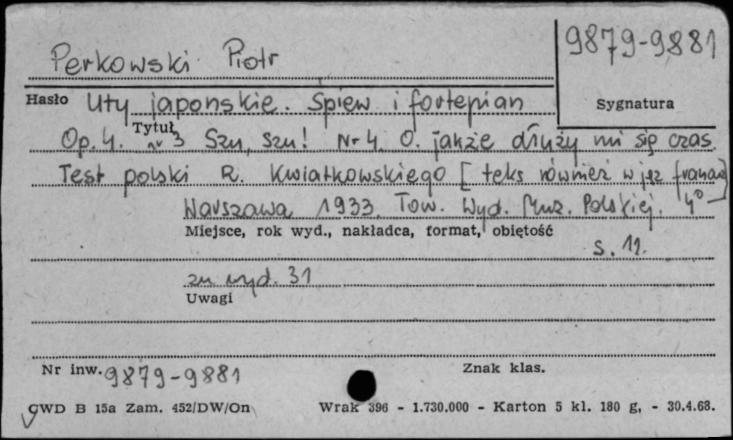 Perkowski Piotr
9879-9881
Hasło Uty japonskie. Śpiew i fortepian
Sygnatura
Tytuł
Op. 4. nr 3 Szu, szu! Nr 4. O. jakże dłuży mi się czas.
Test polski R. Kwiatkowskiego [teks również w jęz franc]
Warszawa 1933. Tow. Wyd. Muz. Polskiej. 4°
Miejsce, rok wyd., nakładca, format, objętość
s. 11.
zn wyd. 31
Uwagi
Nr inw. 9879-9881
Znak klas.
CWD B 15a Zam. 452/DW/On
Wrak 396 - 1.730.000 - Karton 5 kl. 180 g, - 30.4.68.